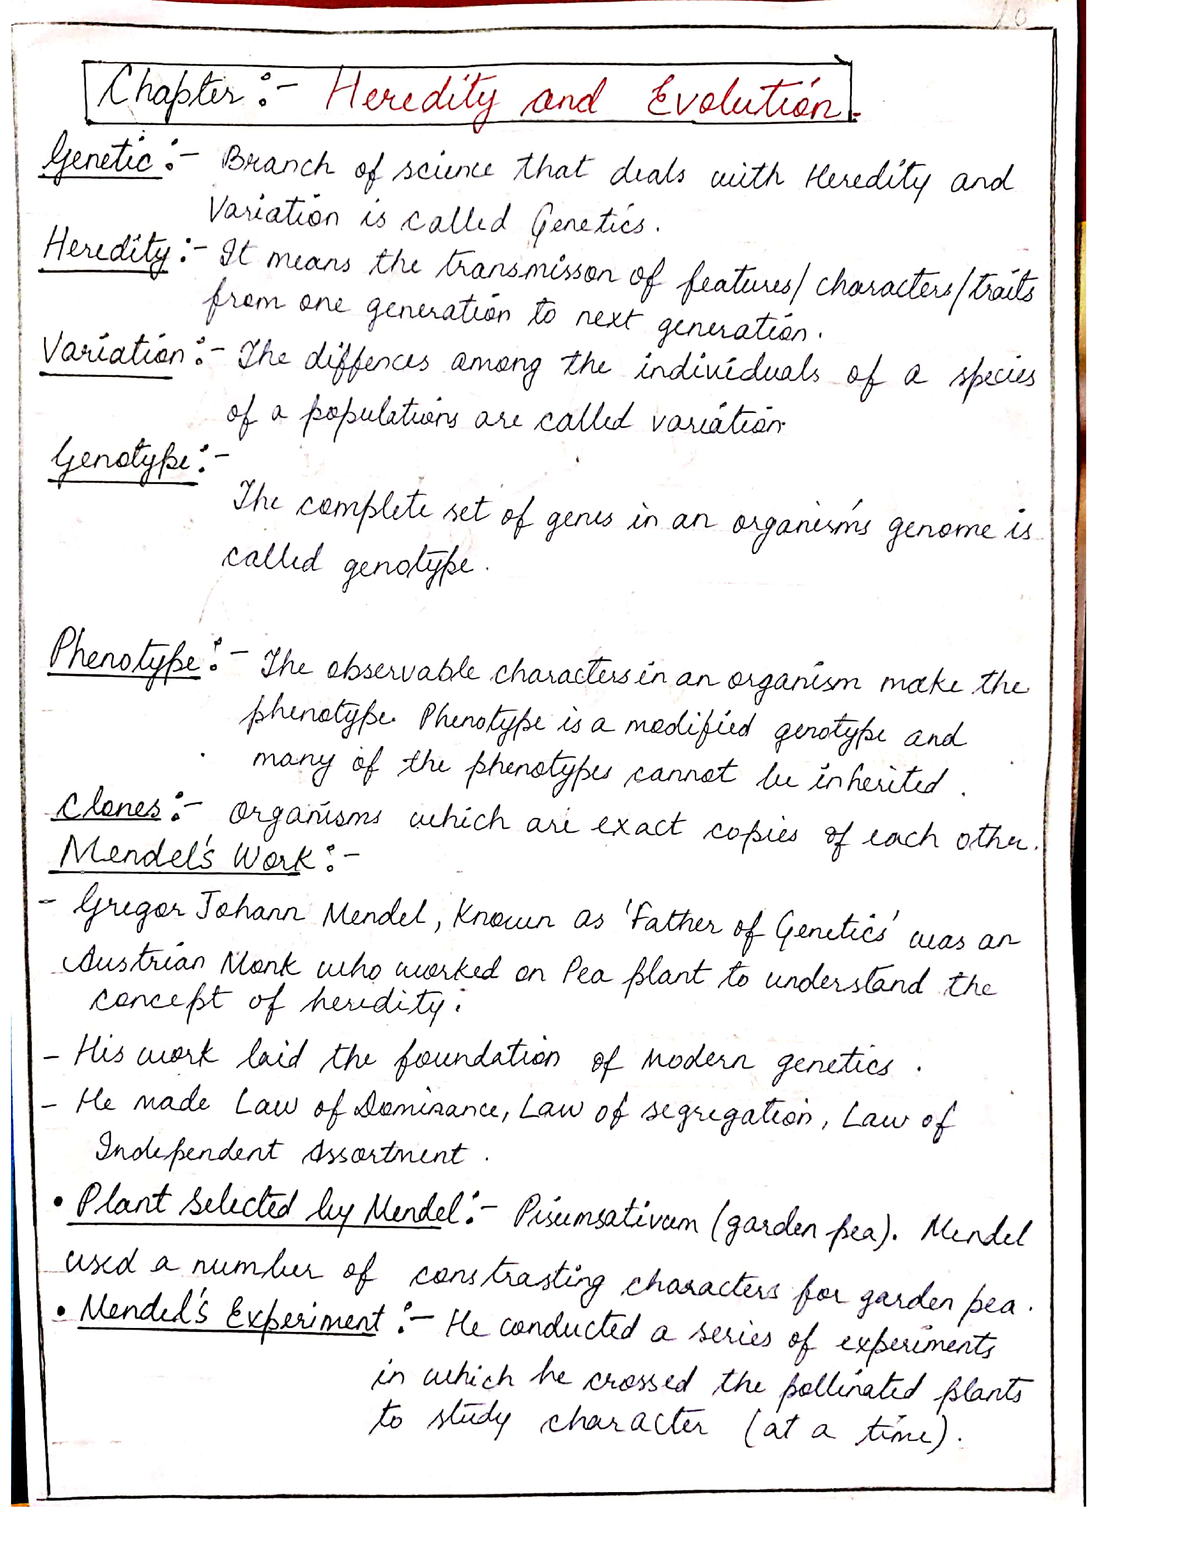 Chapter :- Heredity and Evolution.
Genetic :- Branch of science that deals with Heredity and
Variation is called Genetics.
Heredity :- It means the transmisson of features/ characters/traits
from one generation to next generation.
Variation :- The diffences among the individuals of a species
of a populations are called variation
Genotype :-
The complete set of genes in an organism's genome is
called genotype.
Phenotype :- The observable characters in an organism make the
phenotype. Phenotype is a modified genotype and
many of the phenotypes cannot be inherited.
Clones :- organisms which are exact copies of each other.
Mendel's Work :-
- Gregor Johann Mendel, Known as 'Father of Genetics' was an
Austrian Monk who worked on Pea plant to understand the
concept of heredity.
- His work laid the foundation of modern genetics.
- He made Law of Dominance, Law of segregation, Law of
Independent Assortment.
• Plant Selected by Mendel :- Pisumsativum (garden pea). Mendel
used a number of constrasting characters for garden pea.
• Mendel's Experiment :- He conducted a series of experiments
in which he crossed the pollinated plants
to study character (at a time).